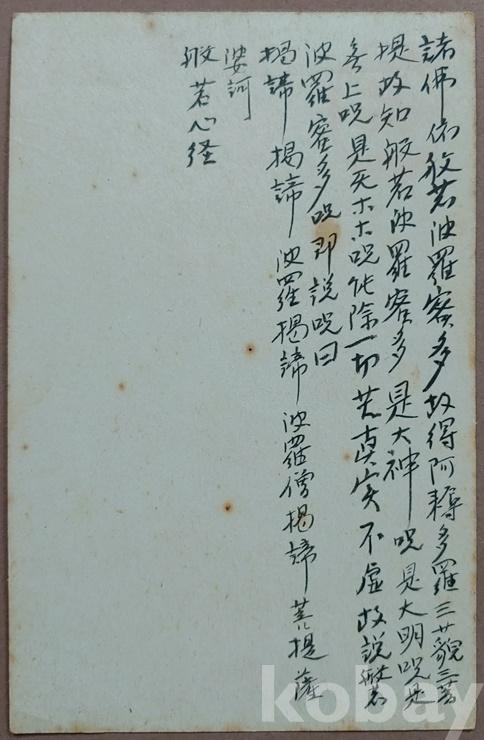 諸佛依般若波羅密多故得阿耨多羅三藐三菩
提故知般若波羅密多是大神呪是大明呪是
無上呪是无ホホ呪能除一切苦真実不虚故説般若
波羅密多呪即説呪曰
揭諦揭諦波羅揭諦波羅僧揭諦菩提薩
婆訶
般若心経
kobay